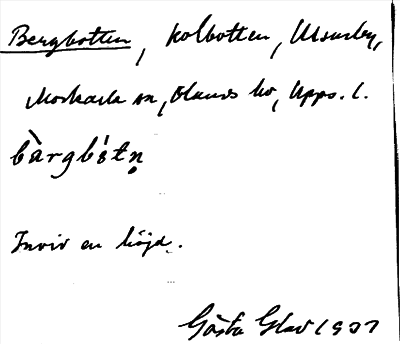 Bergbotten, kolbotten, Utomby,
Morkarla sn, Olands hd, Upps. l.
bàrgbótn̥
Invid en höjd.
Gösta Glad 1937